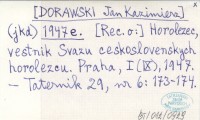 [DORAWSKI Jan Kazimierz]
(jkd) 1947 e. [Rec. o:] Horolezec,
vestnik Svazu československých
horolezcu. Praha, I (IX), 1947.
- Taternik 29, nr 6: 173-174.